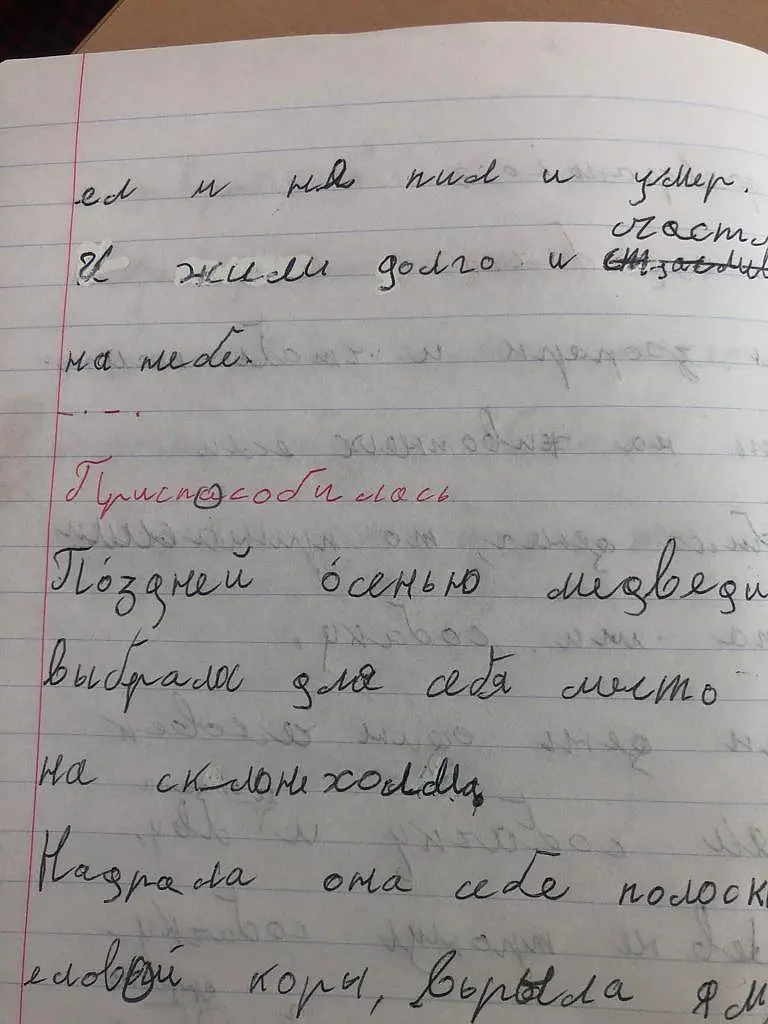 ел и не пил и умер.
счастл
И жили долго и
на небе.
Приспособилась
По́здней о́сенью медведи
выбрала для себя место
на склоне холма,
Надрала она себе полоск
еловой коры, вырыла ям